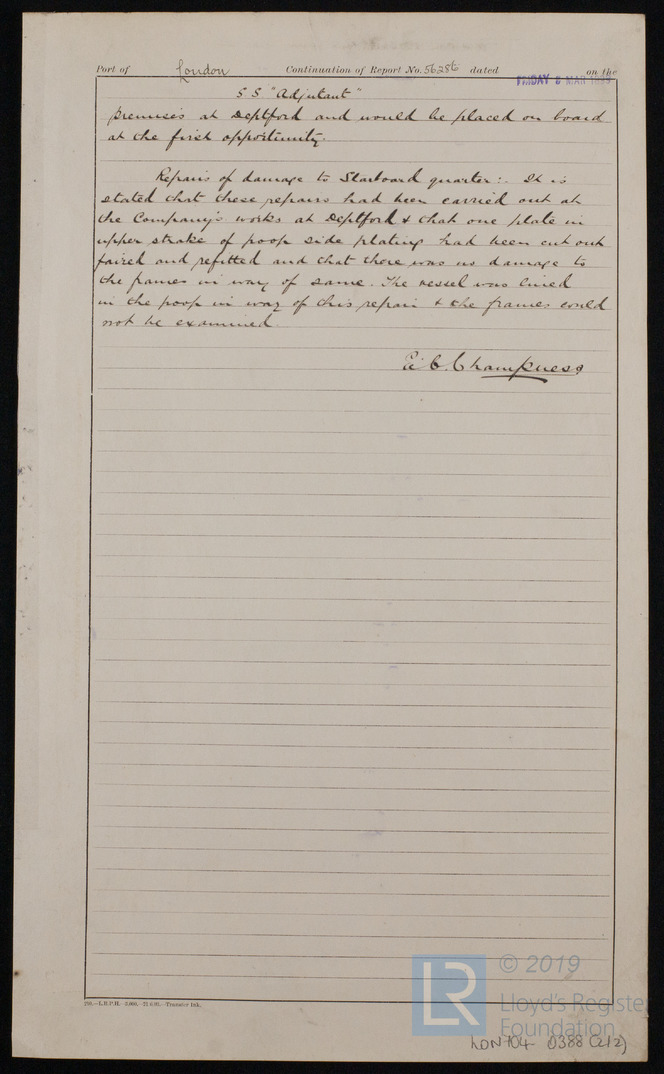 Port of London Continuation of Report No. 56286 dated FRIDAY 5 MAR on the
S.S. "Adjutant"
premises at Deptford and would be placed on board
at the first opportunity.
Repairs of damage to Starboard quarter:- It is
stated that these repairs had been carried out at
the Company's works at Deptford & that one plate in
upper strake of poop side plating had been cut out
faired and refitted and that there was no damage to
the frames in way of same. The vessel was lined
in the poop in way of this repair & the frames could
not be examined.
E. C. Champness
L.R.P.H. Transfer Ink.
© 2019
LR
Lloyd's Register
Foundation
LDN704-0388 (2/2)